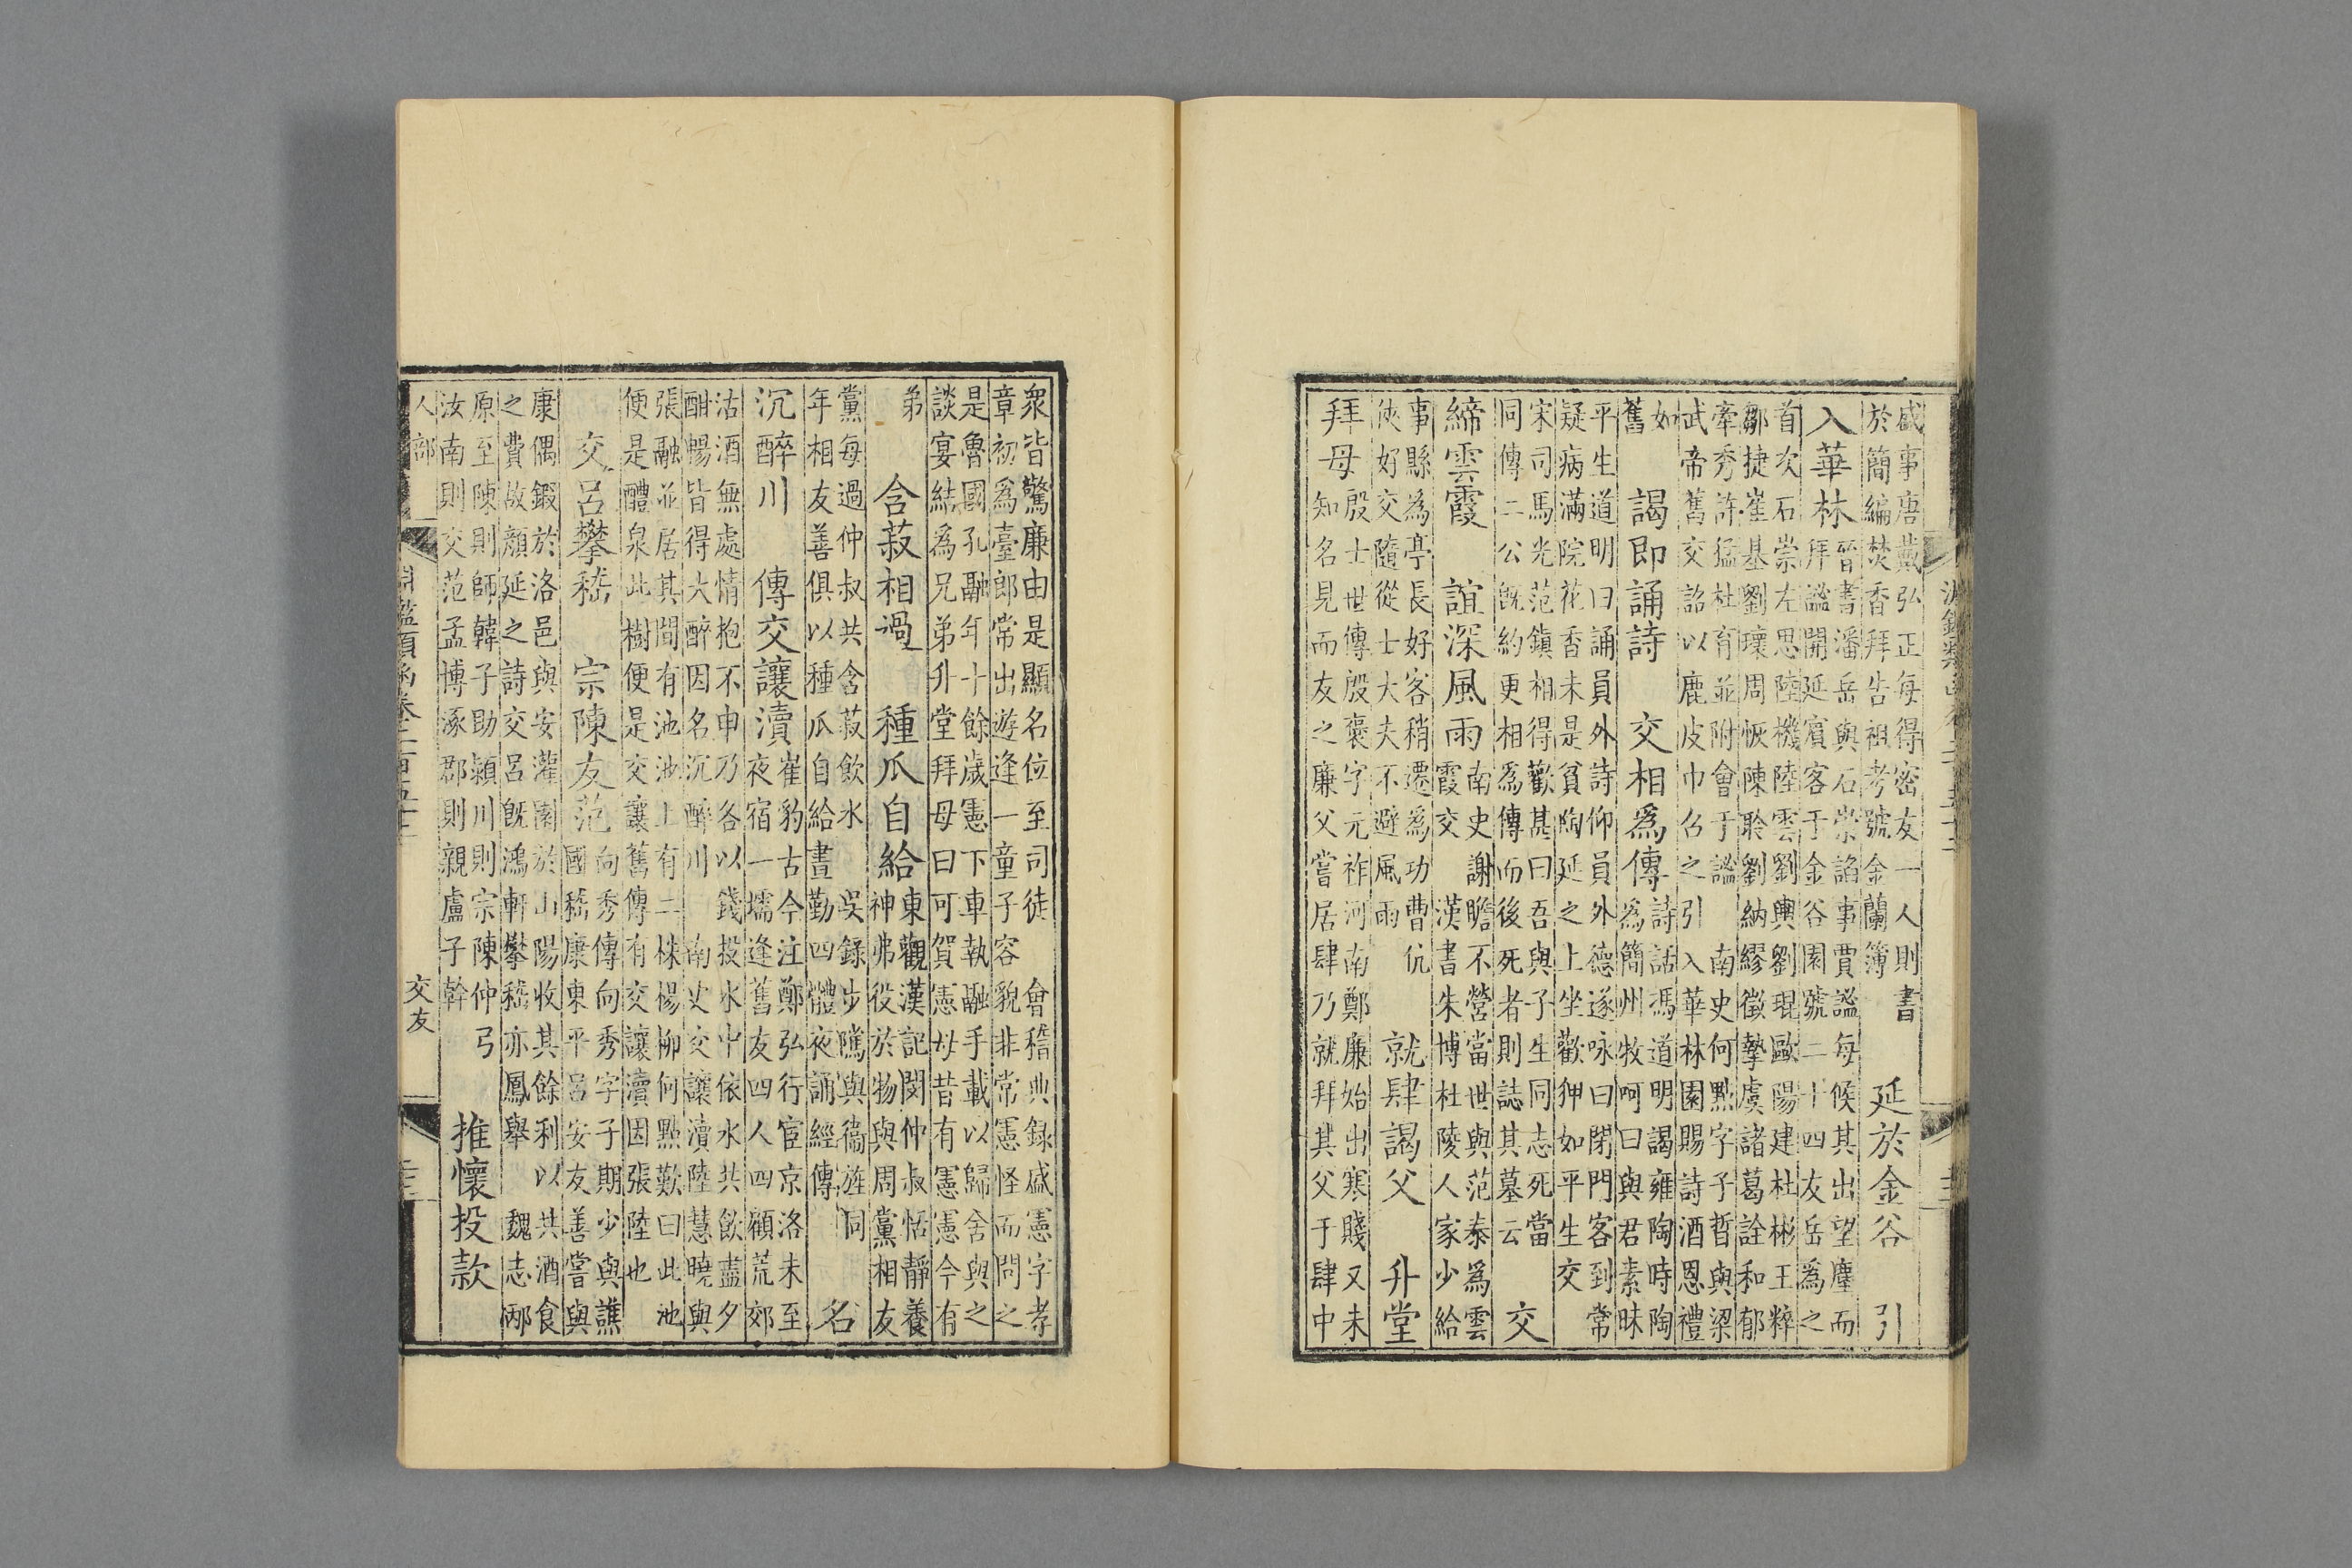 盛事唐戴弘正每得密友一人則書
於簡編焚香拜告祖考號金蘭簿
延於金谷　引
入華林
晉書潘岳與石崇諂事賈謐每候其出望塵而
拜謐開延賓客于金谷園號二十四友岳為之
首次石崇左思陸機陸雲劉輿劉琨歐陽建杜彬王粹
鄒捷崔基劉瓌周恢陳聆劉納繆徵摯虞諸葛詮和郁
牽秀許猛杜育並附會于謐　南史何點字子晳與梁
武帝舊交詔以鹿皮巾召之引入華林園賜詩酒恩禮
如
舊
謁即誦詩　交相為傳
詩話馮道明謁雍陶時陶
為簡州牧呵曰與君素昧
平生道明曰誦員外詩仰員外德遂咏曰閉門客到常
疑病滿院花香未是貧陶延之上坐歡狎如平生交
宋司馬光范鎮相得歡甚曰吾與子生同志死當
同傳二公既約更相為傳而後死者則誌其墓云
交
締雲霞　誼深風雨
南史謝瞻不營當世與范泰為雲
霞交　漢書朱博杜陵人家少給
事縣為亭長好客稍遷為功曹伉
俠好交隨從士大夫不避風雨
就肆謁父　升堂
拜母
殷士世傳殷褒字元祚河南鄭廉始出寒賤又未
知名見而友之廉父嘗居肆乃就拜其父于肆中
眾皆驚廉由是顯名位至司徒　會稽典錄盛憲字孝
章初為臺郎常出遊逢一童子容貌非常憲怪而問之
是魯國孔融年十餘歲憲下車執融手載以歸舍與之
談宴結為兄弟升堂拜母曰可賀憲母昔有憲憲今有
弟
含菽相過　種瓜自給
東觀漢記閔仲叔恬靜養
神弗役於物與周黨相友
黨每過仲叔共含菽飲水　吳錄步隲與衛旌同
年相友善俱以種瓜自給晝勤四體夜誦經傳
名
沉醉川　傳交讓瀆
崔豹古今注鄭弘行宦京洛未至
夜宿一壖逢舊友四人四顧荒郊
沽酒無處情抱不申乃各以錢投水中依水共飲盡夕
酣暢皆得大醉因名沉醉川　南史交讓瀆陸慧曉與
張融並居其間有池池上有二株楊柳何點歎曰此池
便是醴泉此樹便是交讓舊傳有交讓瀆因張陸也
交呂攀嵇　宗陳友范
向秀傳向秀字子期少與譙
國嵇康東平呂安友善嘗與
康偶鍛於洛邑與安灌園於山陽收其餘利以共酒食
之費故顏延之詩交呂既鴻軒攀嵇亦鳳舉　魏志邴
原至陳則師韓子助潁川則宗陳仲弓
汝南則交范孟博涿郡則親盧子幹
推懷投款
人部
淵鑑類函卷二百五十二
交友